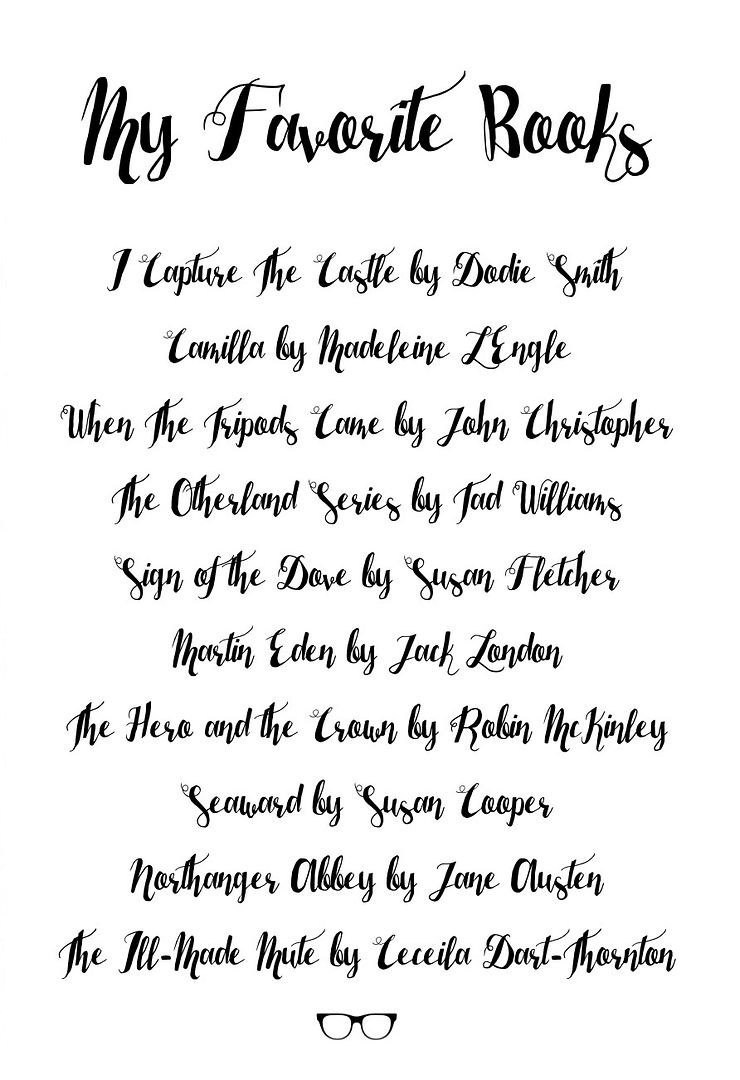 My Favorite Books
I Capture The Castle by Dodie Smith
Camilla by Madeleine L'Engle
When The Tripods Came by John Christopher
The Otherland Series by Tad Williams
Sign of the Dove by Susan Fletcher
Martin Eden by Jack London
The Hero and the Crown by Robin McKinley
Seaward by Susan Cooper
Northanger Abbey by Jane Austen
The Ill-Made Mute by Ceceila Dart-Thornton